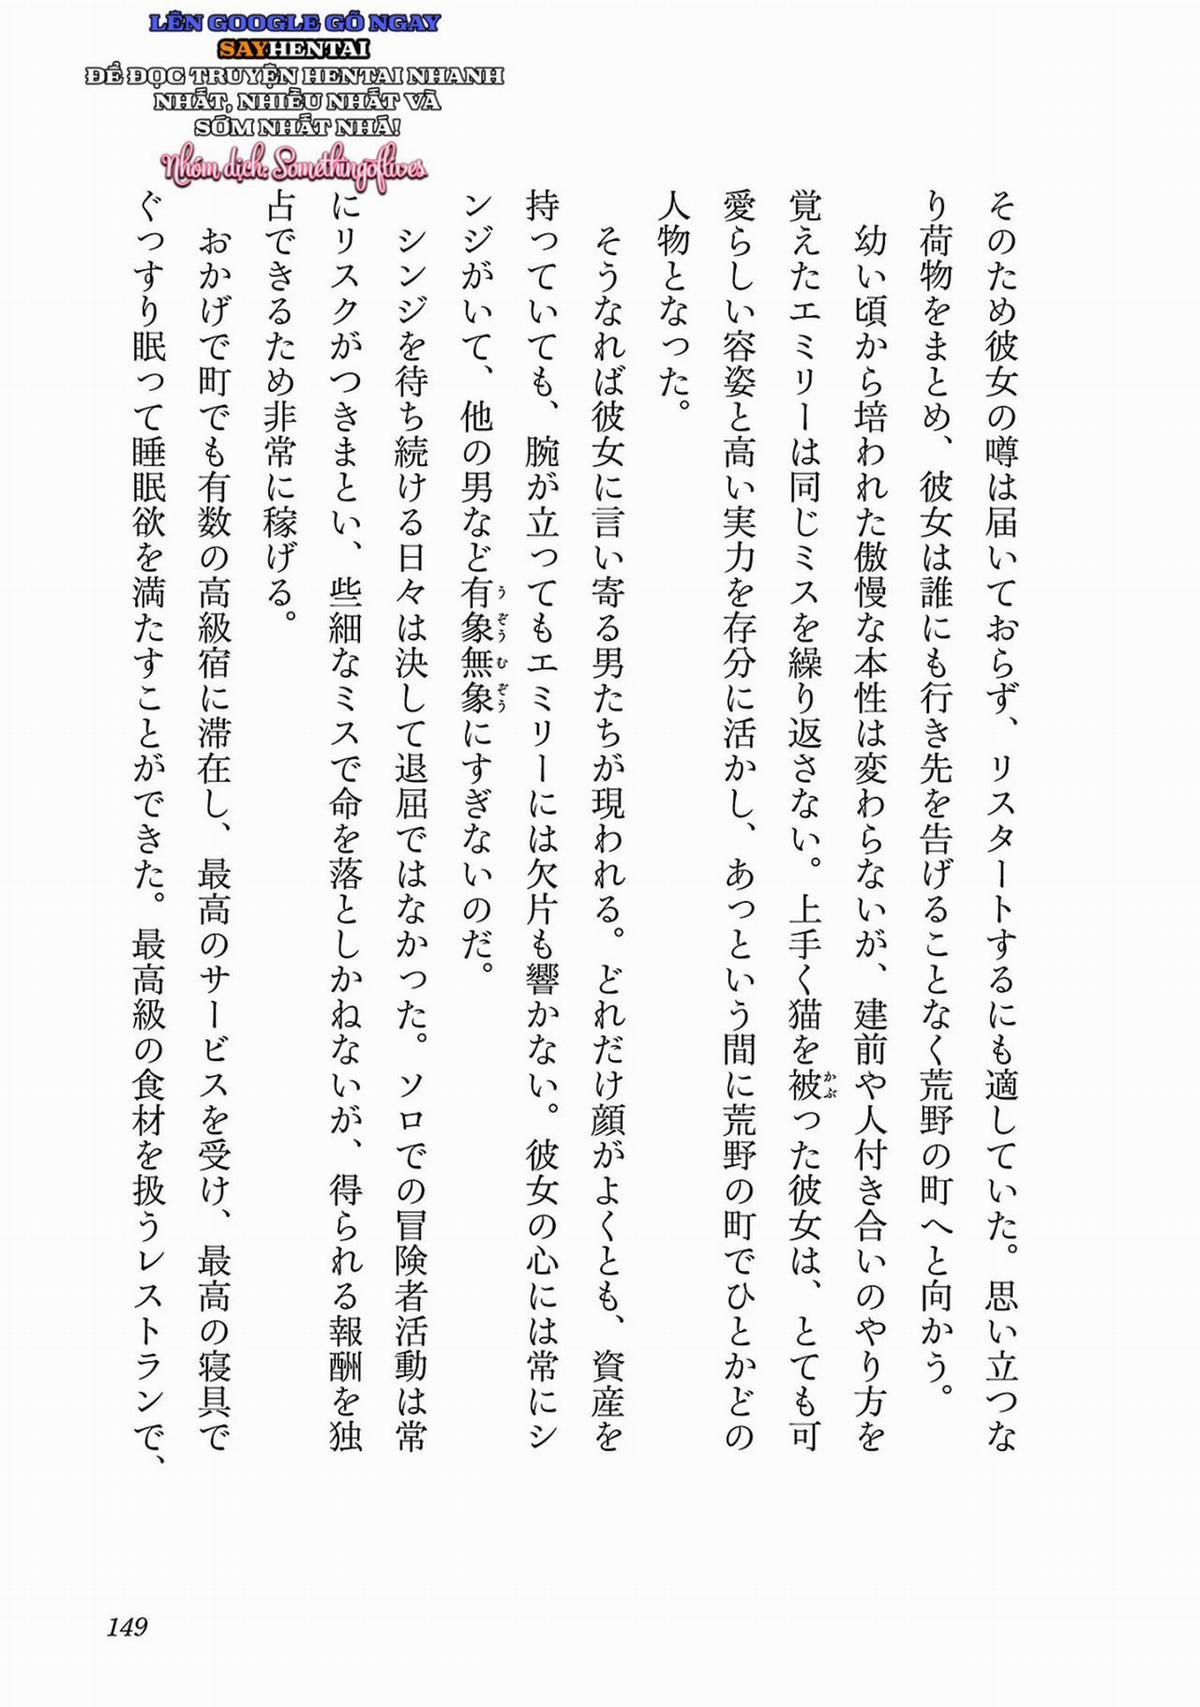 LÊN GOOGLE GÕ NGAY
SAYHENTAI
ĐỂ ĐỌC TRUYỆN HENTAI NHANH
NHẤT, NHIỀU NHẤT VÀ
SỚM NHẤT NHÁ!
Nhóm dịch: Somethingoflives
そのため彼女の噂は届いておらず、リスタートするにも適していた。思い立つな
り荷物をまとめ、彼女は誰にも行き先を告げることなく荒野の町へと向かう。
幼い頃から培われた傲慢な本性は変わらないが、建前や人付き合いのやり方を
覚えたエミリーは同じミスを繰り返さない。上手く猫を被った彼女は、とても可
かぶ
愛らしい容姿と高い実力を存分に活かし、あっという間に荒野の町でひとかどの
人物となった。
そうなれば彼女に言い寄る男たちが現われる。どれだけ顔がよくとも、資産を
持っていても、腕が立ってもエミリーには欠片も響かない。彼女の心には常にシ
ンジがいて、他の男など有象無象にすぎないのだ。
うぞうむぞう
シンジを待ち続ける日々は決して退屈ではなかった。ソロでの冒険者活動は常
にリスクがつきまとい、些細なミスで命を落としかねないが、得られる報酬を独
占できるため非常に稼げる。
おかげで町でも有数の高級宿に滞在し、最高のサービスを受け、最高の寝具で
ぐっすり眠って睡眠欲を満たすことができた。最高級の食材を扱うレストランで、
149